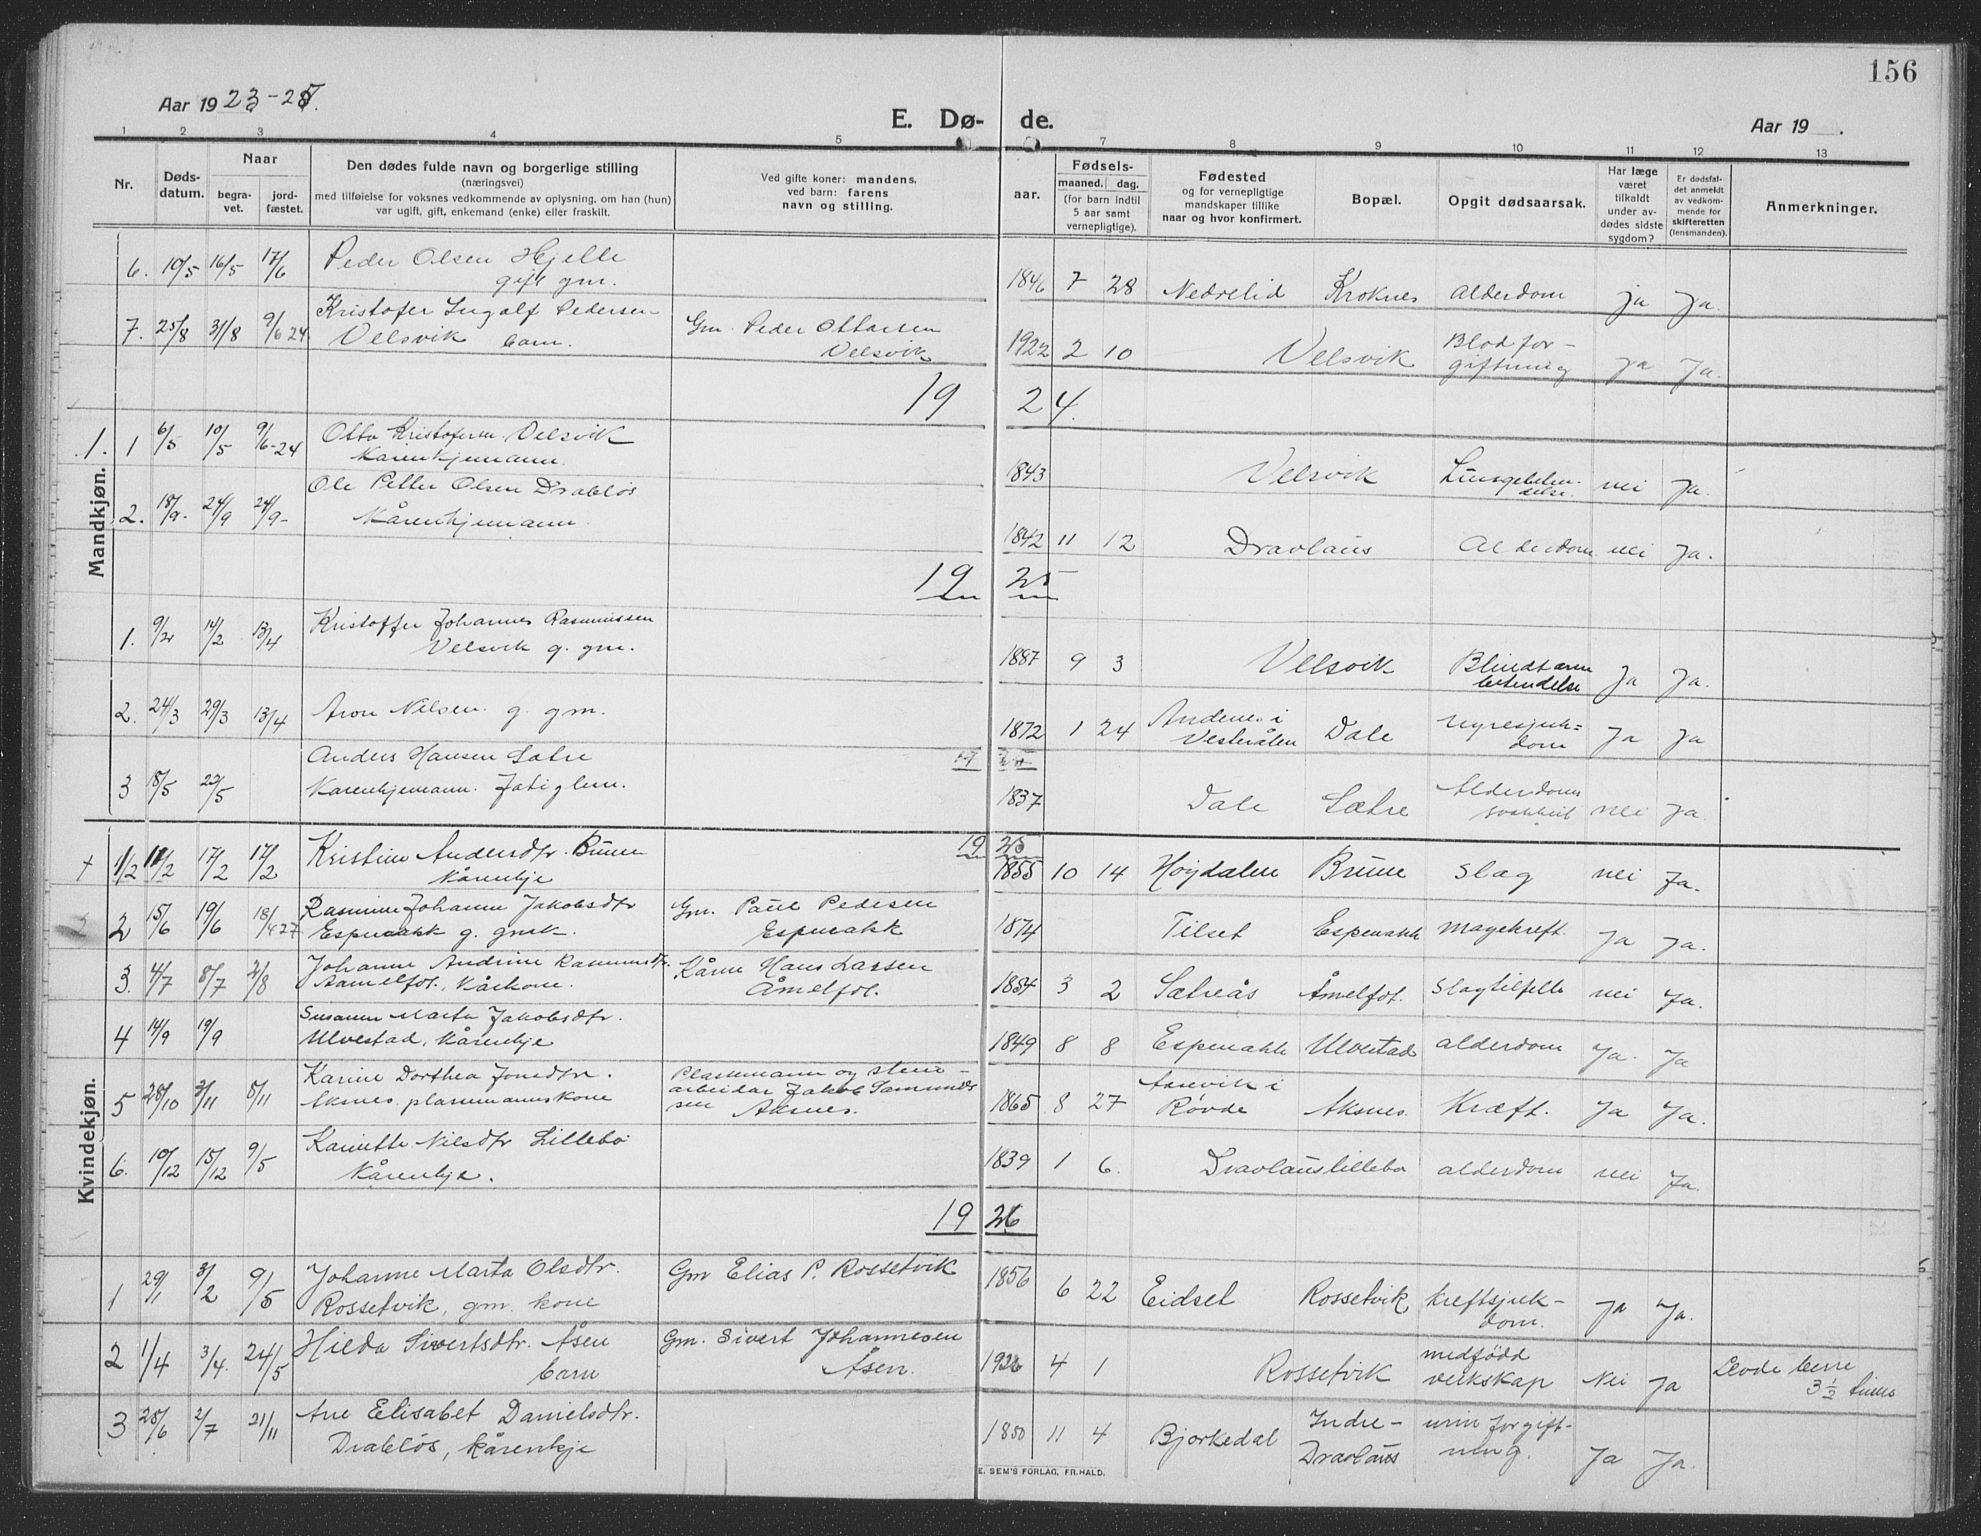 156
Aar 1923-25.
E. Dø- de.
Aar 19 .
1 2 3 4 5 7 8 9 10 11 12 13
Nr.
Døds-
datum.
Naar
begra-
vet.
jord-
fæstet.
Den dødes fulde navn og borgerlige stilling
(næringsvei)
med tilføielse for voksnes vedkommende av oplysning, om han (hun)
var ugift, gift, enkemand (enke) eller fraskilt.
Ved gifte koner: mandens,
ved barn: farens
navn og stilling.
aar.
Fødsels-
maaned. dag.
(for barn indtil
5 aar samt
vernepligtige).
Fødested
og for vernepligtige
mandskaper tillike
naar og hvor konfirmert.
Bopæl.
Opgit dødsaarsak.
Har læge
været
tilkaldt
under av-
dødes sidste
sygdom?
Er dødsfal-
det anmeldt
av vedkom-
mende for
skifteretten
(lensmanden).
Anmerkninger.
Mandkjøn.
6. 10/5 16/5 17/6 Peder Olsen Hjelle
gift gm.
1846 7 28 Nedrelid Kroknes Alderdom ja Ja.
7. 25/8 31/8 9/6 24 Kristofer Ingolf Pedersen
Velsvik barn.
Gm. Peder Ottarsen
Velsvik
1922 2 10 Velsvik Blodfor-
giftning ja Ja.
19 24.
1. 1 6/5 10/5 9/6-24 Otto Kristofersen Velsvik
Kårenkjemann.
1843 Velsvik nei Ja.
2. 18/9- 24/9 24/9- Ole Petter Olsen Drabløs
Kårenkjemann.
1842 11 12 Dravlaus Alderdom nei Ja.
19 25
1. 9/2 14/2 13/4 Kristoffer Johannes Rasmussen
Velsvik g. gm.
1887 9 3 Velsvik Blindtarm
betendelse Ja Ja.
2. 24/3 29/3 13/4 Aron Nilsen. g. gm.
1872 1 24 Andenes i
Vesterålen Dale nyresjuk=
dom Ja Ja
3 18/5 22/5 Anders Hansen Satre
Kårenkjemann. Fatiglem.
1837 Dale Sætre Alderdoms
svakheit nei Ja.
Kvindekjøn.
19 25
1/2 11/2 17/2 17/2 Kristine Andersdtr. Brune
Kårenkje
1855 10 14 Højdalen Brune Slag nei Ja.
2 15/6 19/6 18/4 27 Rasmine Johanne Jakobsdtr
Espenakk g. gmk.
Gm. Paul Pedesen
Espenakk
1874 Tilset Espenakk Magekreft. Ja Ja.
3. 4/7 8/7 2/8 Johanne Andrine Rasmusdtr.
Aamelfot, Kårkone.
Kårm Hans Lassen
Åmelfot.
1854 3 2 Sætreås Åmelfot. Slagtilfelle nei Ja.
4 14/9 19/9 Susanne Marta Jakobsdtr.
Ulvestad, Kårenkje
1849 8 8 Espenakk Ulvestad alderdom Ja. Ja
5 28/10 3/11 8/11 Karine Dorthea Jonsdtr.
Aksnes plassmannskone
Plassemann og stein-
arbeidar Jakob Samund
sen Aksnes.
1865 8 27 Aarevik i
Røvde Aksnes. Kræft. Ja Ja.
6. 10/12 15/12 9/5 Karnitte Nilsdtr Lillebø
Kårenkje.
1839 1 6. Dravlauslillebø alderdom nei Ja.
19 26
1 29/1 3/2 9/5 Johanne Marta Olsdtr.
Rossetvik, gm. kone
Gm Elias P. Rossetvik
1856 6 22 Eidset Rossetvik Kreftsjuk-
dom. Ja Ja.
2 1/4 3/4. 24/5 Hilda Sivertsdtr. Åsen
barn
Gm. Sivert Johannesen
Åsen.
1926 4 1 Rossetvik medfödd
veikskap Nei Ja Levde berre
3 1/2 timer
3 25/6 2/7 21/11 Ane Elisabet Danielsdtr.
Drabløs, kårenkje
1850 11 4 Bjorkedal Indre-
Dravlaus urinforgift-
ning. Ja Ja.
E. SEM'S FORLAG, FR.HALD.